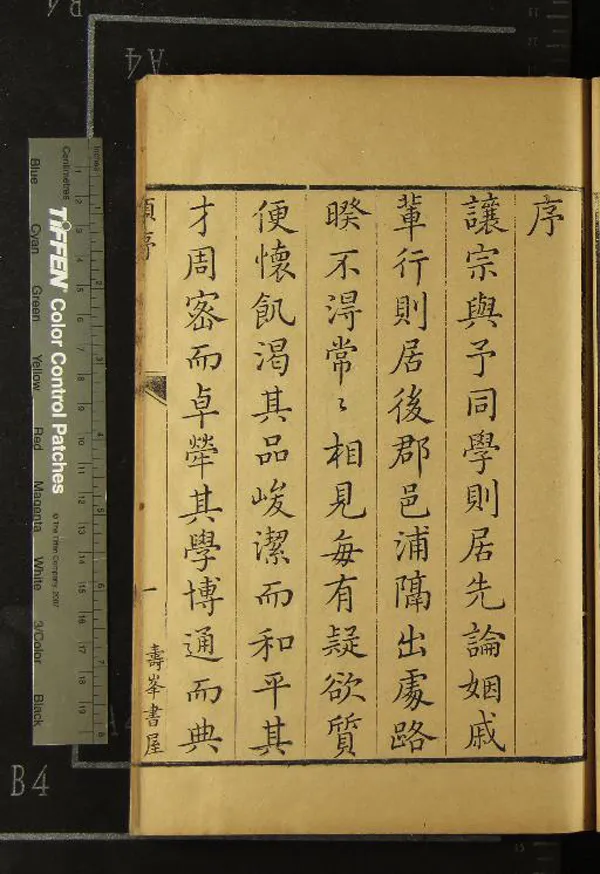 序
讓宗與予同學則居先論姻戚
軰行則居後郡邑浦隔出處路
暌不淂常〻相見每有疑欲質
便懷飢渴其品峻潔而和平其
才周宻而卓犖其學博通而典
序
一
壽峯書屋
B4
A4
Inches
Centimetres
TIFFEN Color Control Patches
© The Tiffen Company, 2007
Blue
Cyan
Green
Yellow
Red
Magenta
White
3/Color
Black